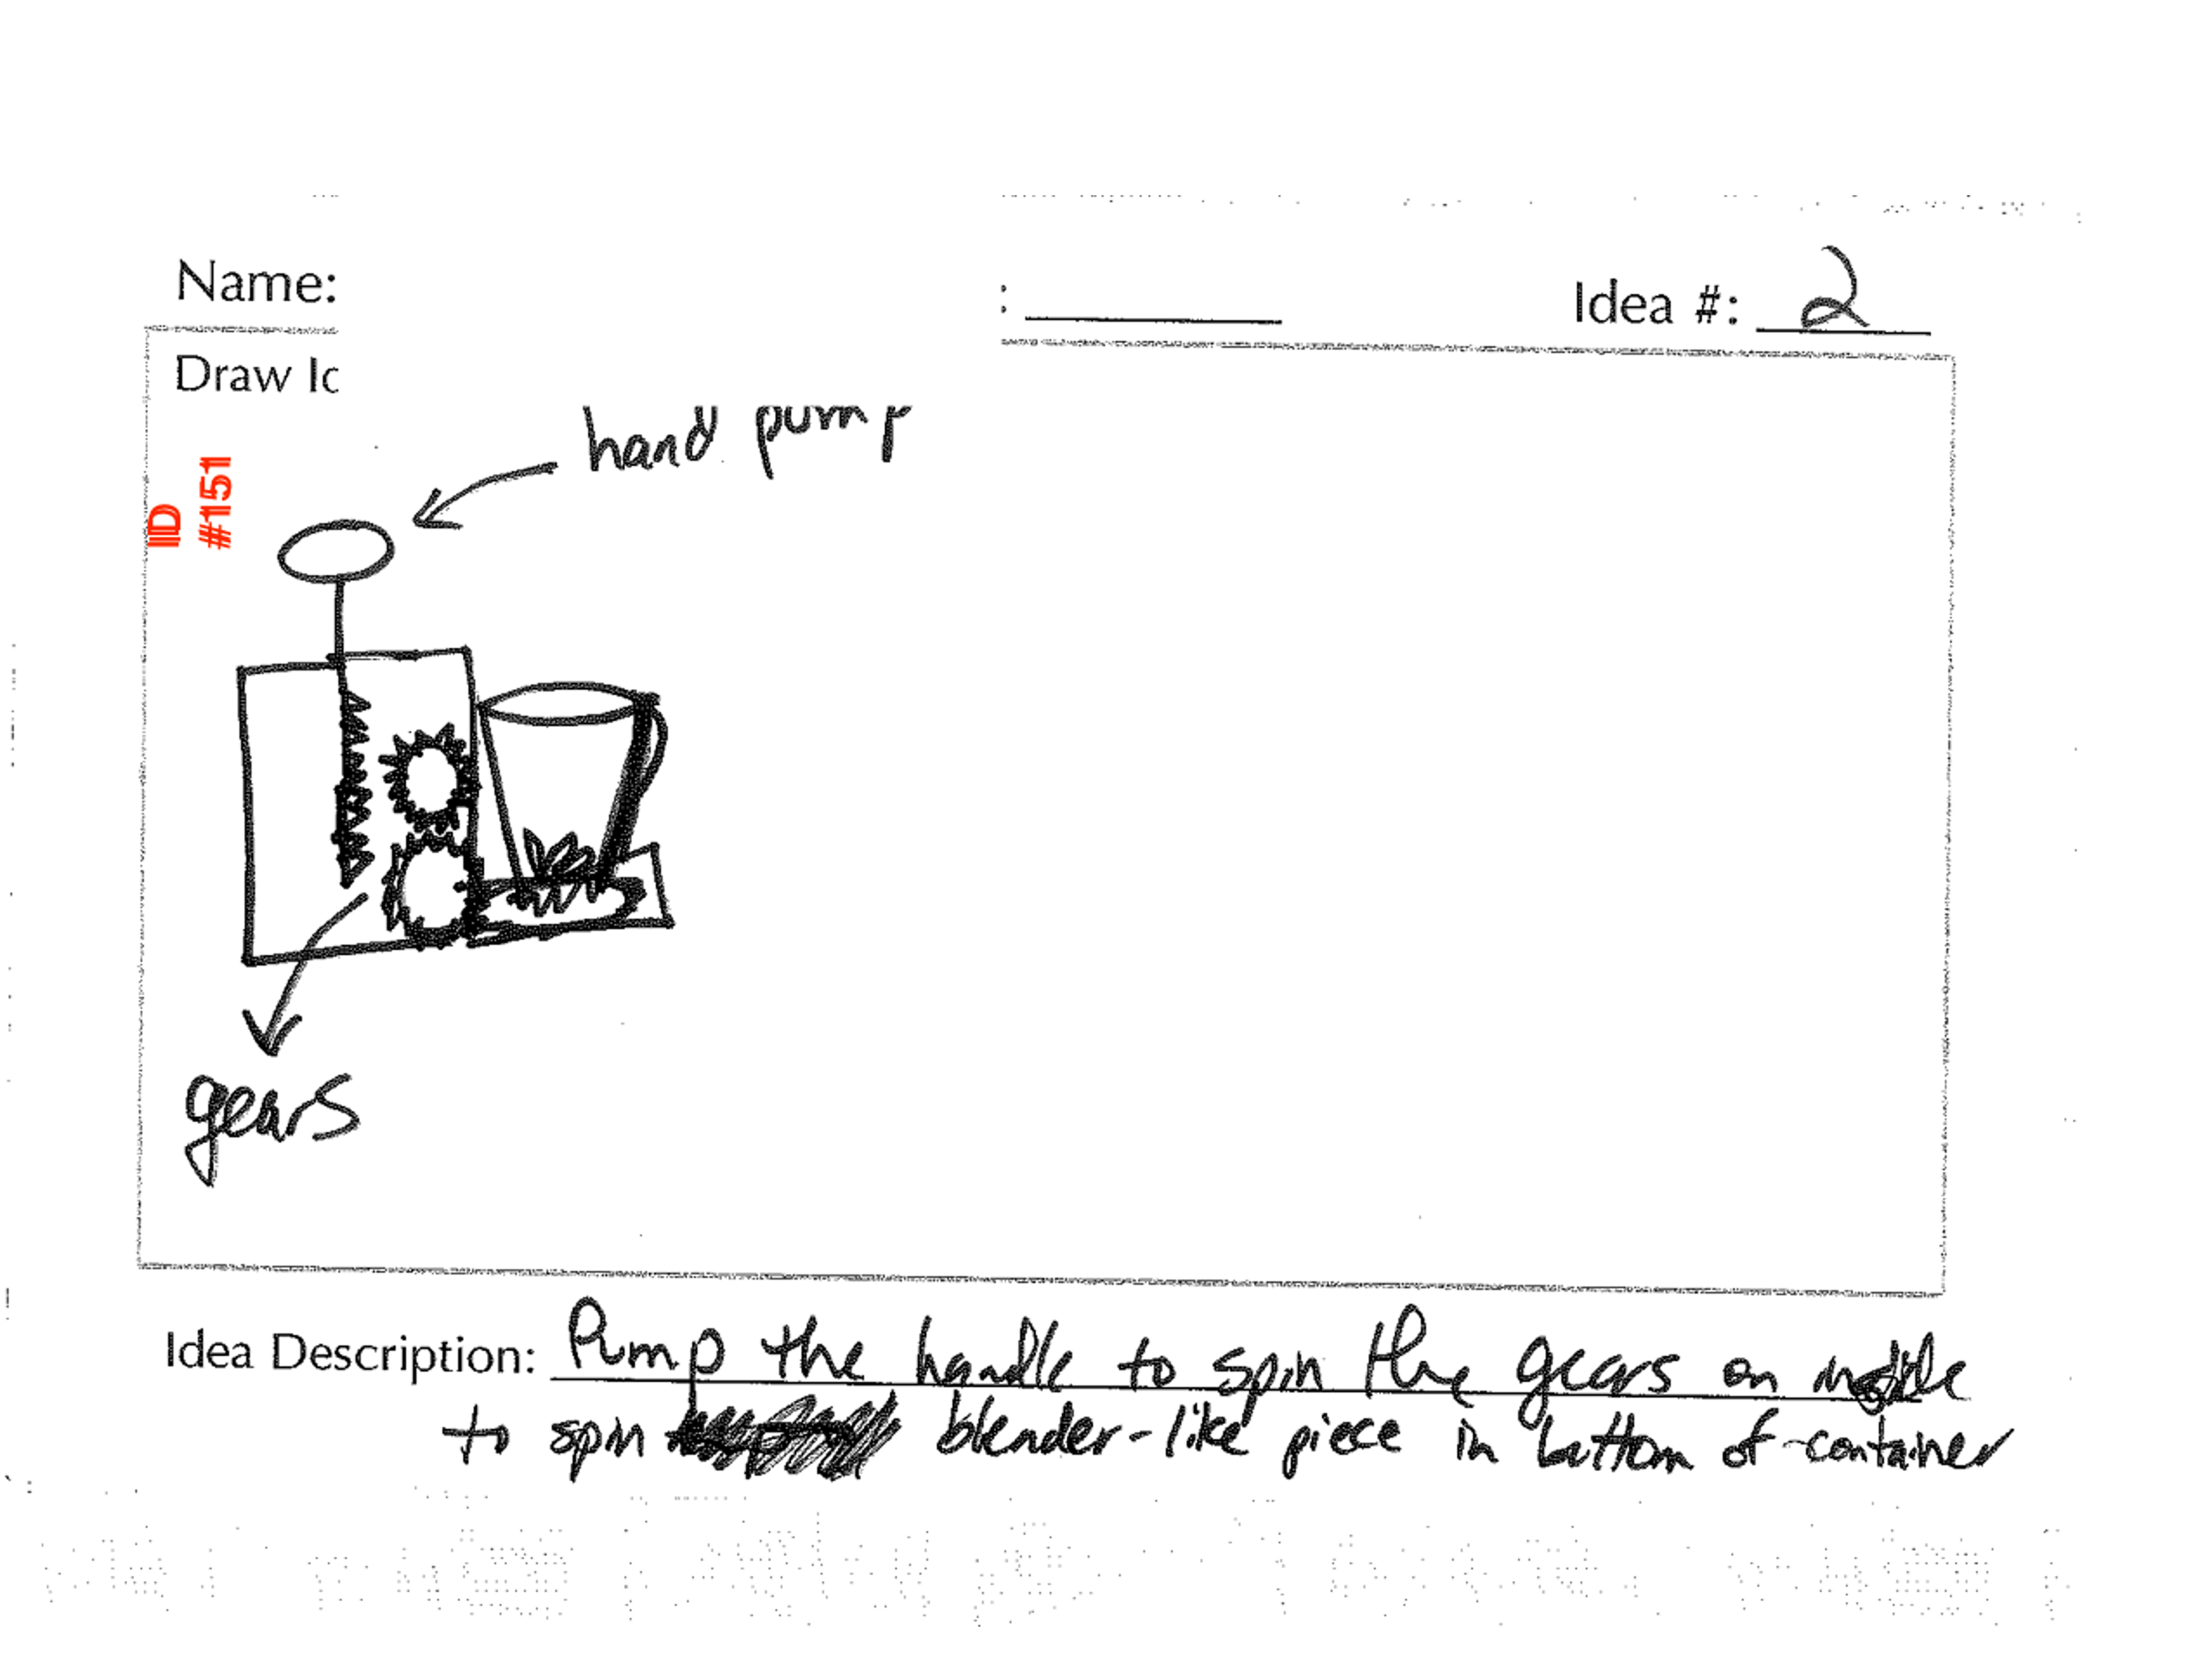 Name:
: Idea #: 2
Draw Id
ID
#151
hand pump
gears
Idea Description: Pump the handle to spin the gears on inside
to spin blender-like piece in bottom of container